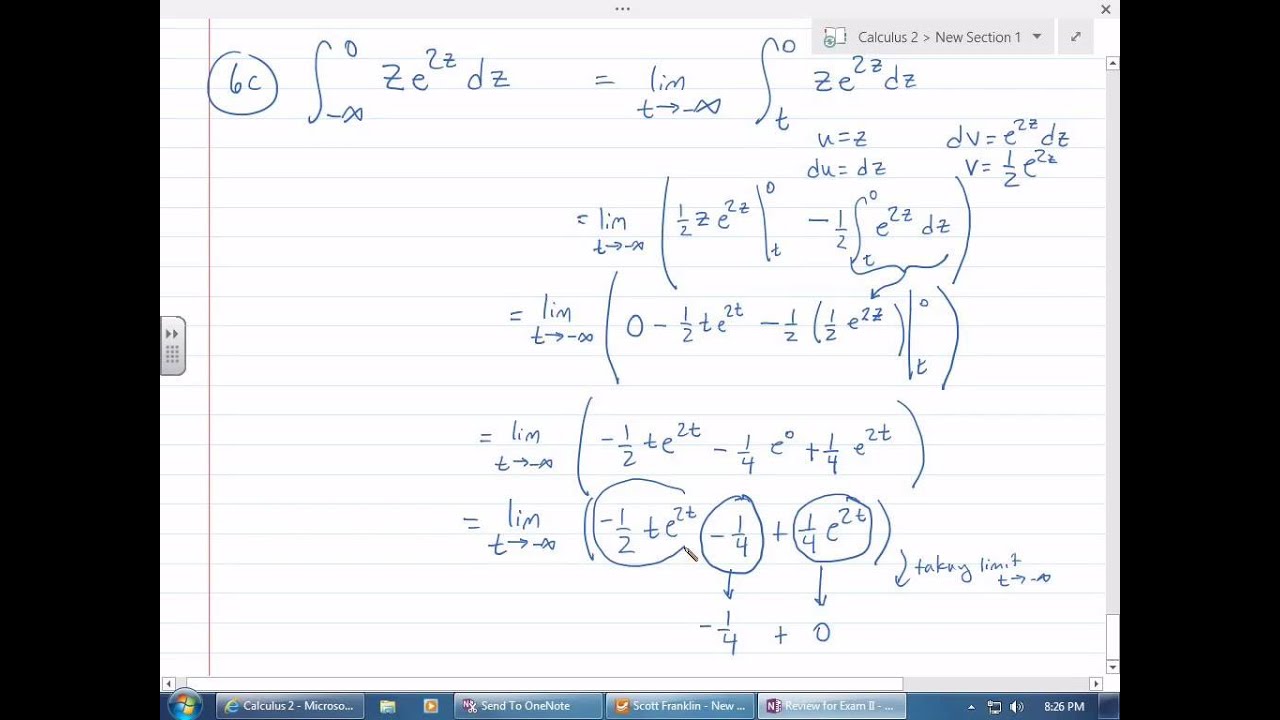 ...
Calculus 2 > New Section 1
6c ∫_{-∞}^{0} z e^{2z} dz = lim_{t→-∞} ∫_{t}^{0} z e^{2z} dz
u = z dv = e^{2z} dz
du = dz v = 1/2 e^{2z}
= lim_{t→-∞} ( 1/2 z e^{2z} |_{t}^{0} - 1/2 ∫_{t}^{0} e^{2z} dz )
= lim_{t→-∞} ( 0 - 1/2 t e^{2t} - 1/2 ( 1/2 e^{2z} ) |_{t}^{0} )
= lim_{t→-∞} ( -1/2 t e^{2t} - 1/4 e^{0} + 1/4 e^{2t} )
= lim_{t→-∞} ( -1/2 t e^{2t} - 1/4 + 1/4 e^{2t} )
takay limit t→-∞
-1/4 + 0
Calculus 2 - Microso...
Send To OneNote
Scott Franklin - New ...
Review for Exam II - ...
8:26 PM